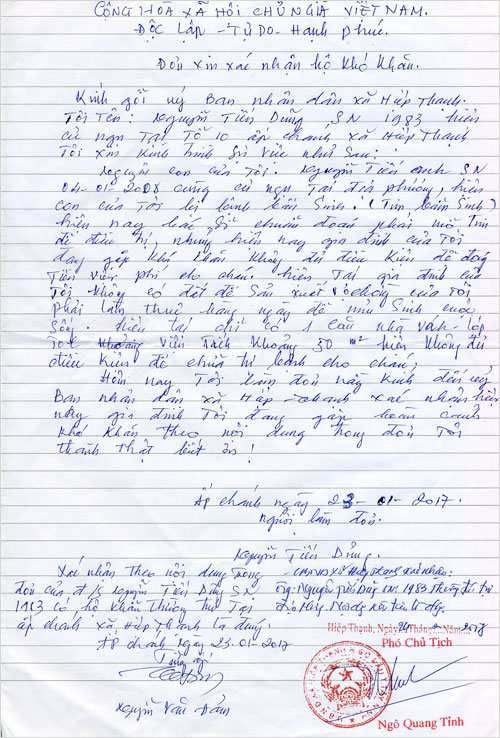 CỘNG HÒA XÃ HỘI CHỦ NGHĨA VIỆT NAM.
Độc Lập - Tự Do - Hạnh phúc.
Đơn xin xác nhận hộ khó khăn.
Kính gởi uỷ Ban nhân dân xã Hiệp Thạnh.
Tôi Tên: Nguyễn Tiến Dũng, SN 1983 hiện
cư ngụ Tại Tổ 10 ấp chánh xã Hiệp Thạnh
Tôi xin Kính trình sự việc như sau:
Nguyên con của Tôi. Nguyễn Tiến anh SN
04-01-2008 cùng cư ngụ Tại địa phương, hiện
con của Tôi bị bệnh bẩm sinh. (Tim bẩm sinh)
hiện nay bác sĩ chuẩn đoán phải mổ Tim
để điều trị, nhưng hiện nay gia đình của Tôi
đang gặp khó khăn không đủ điều kiện để đóng
Tiền viện phí cho cháu. hiện Tại gia đình của
Tôi không có đất để sản xuất vợ chồng của Tôi
phải làm thuê hàng ngày để mưu sinh cuộc
sống. Hiện tại chỉ có 1 căn nhà vách lớp
Tole diện tích khoảng 50 m² hiện không đủ
điều kiện để chữa trị bệnh cho cháu,
Hôm nay Tôi làm đơn này kính đến uỷ
Ban nhân dân xã Hiệp Thạnh xác nhận hiện
nay gia đình Tôi đang gặp hoàn cảnh
khó khăn theo nội dung trong đơn Tôi
thành thật biết ơn!
Ấp chánh ngày 23-01-2017.
người làm đơn.
Nguyễn Tiến Dũng.
Xác nhận theo nội dung trong
đơn của Nguyễn Tiến Dũng SN
1983 có hộ khẩu thường trú Tại
ấp chánh xã Hiệp Thạnh là đúng.
Ấp chánh ngày 23.01-2017
Trưởng ấp
Nguyễn Văn
UBND xã Hiệp Thạnh xác nhận:
Ông: Nguyễn Tiến Dũng sn: 1983 thường trú tại
Hiệp Thạnh, Ngày 24 Tháng 2 Năm 2017
Phó Chủ Tịch
Ngô Quang Tính